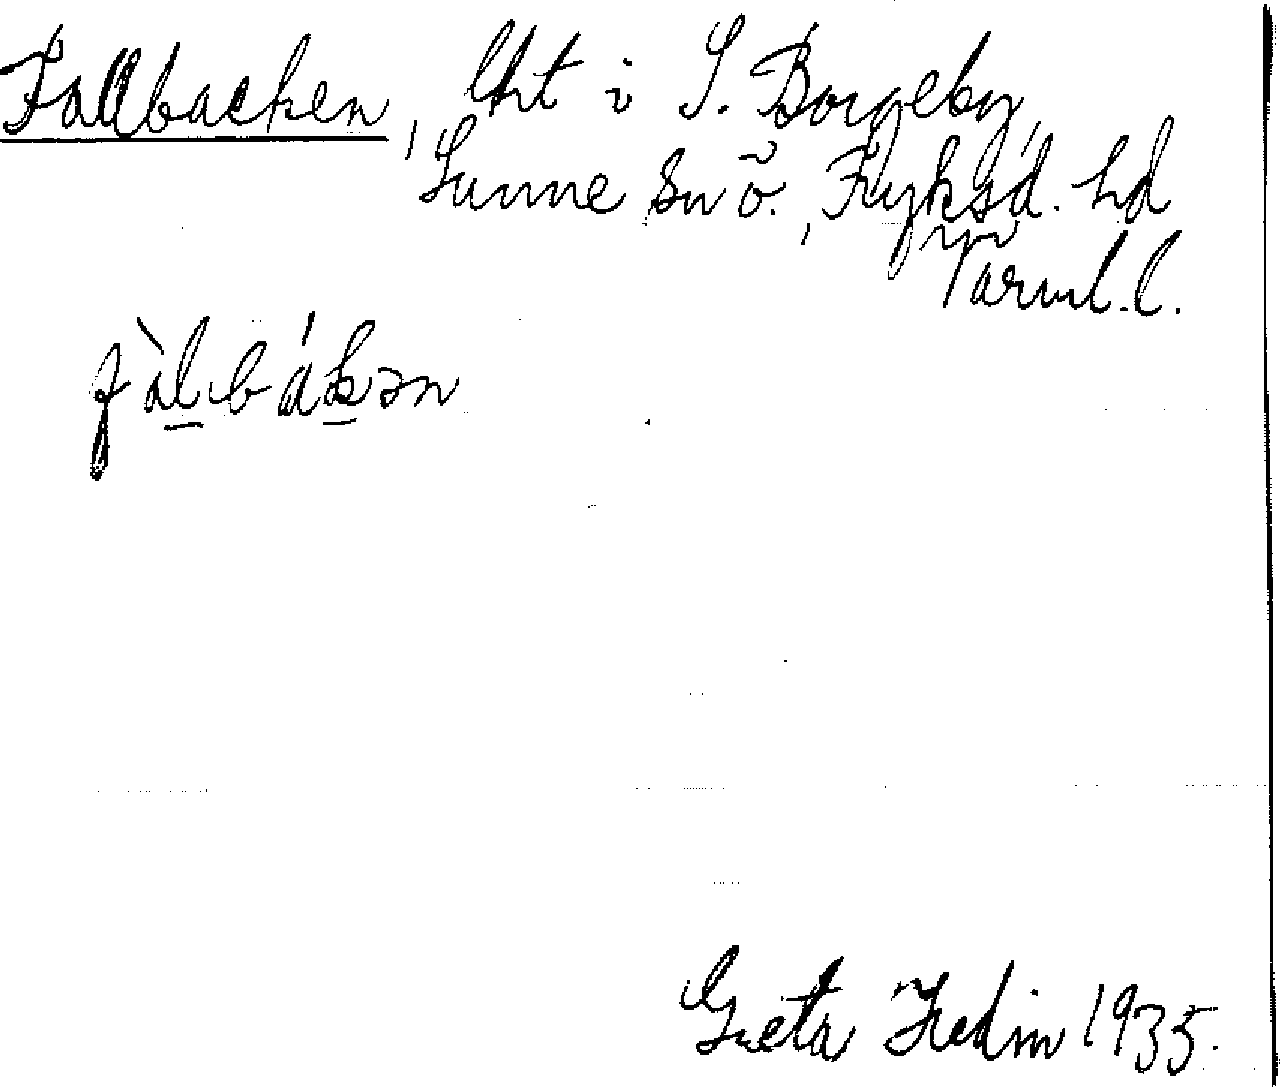 Fallbacken, lht i S. Borgeby,
Sunne sn ö., Fryksd. hd
Värml. l.
fàl̲bák̲ən
Greta Hedin 1935.